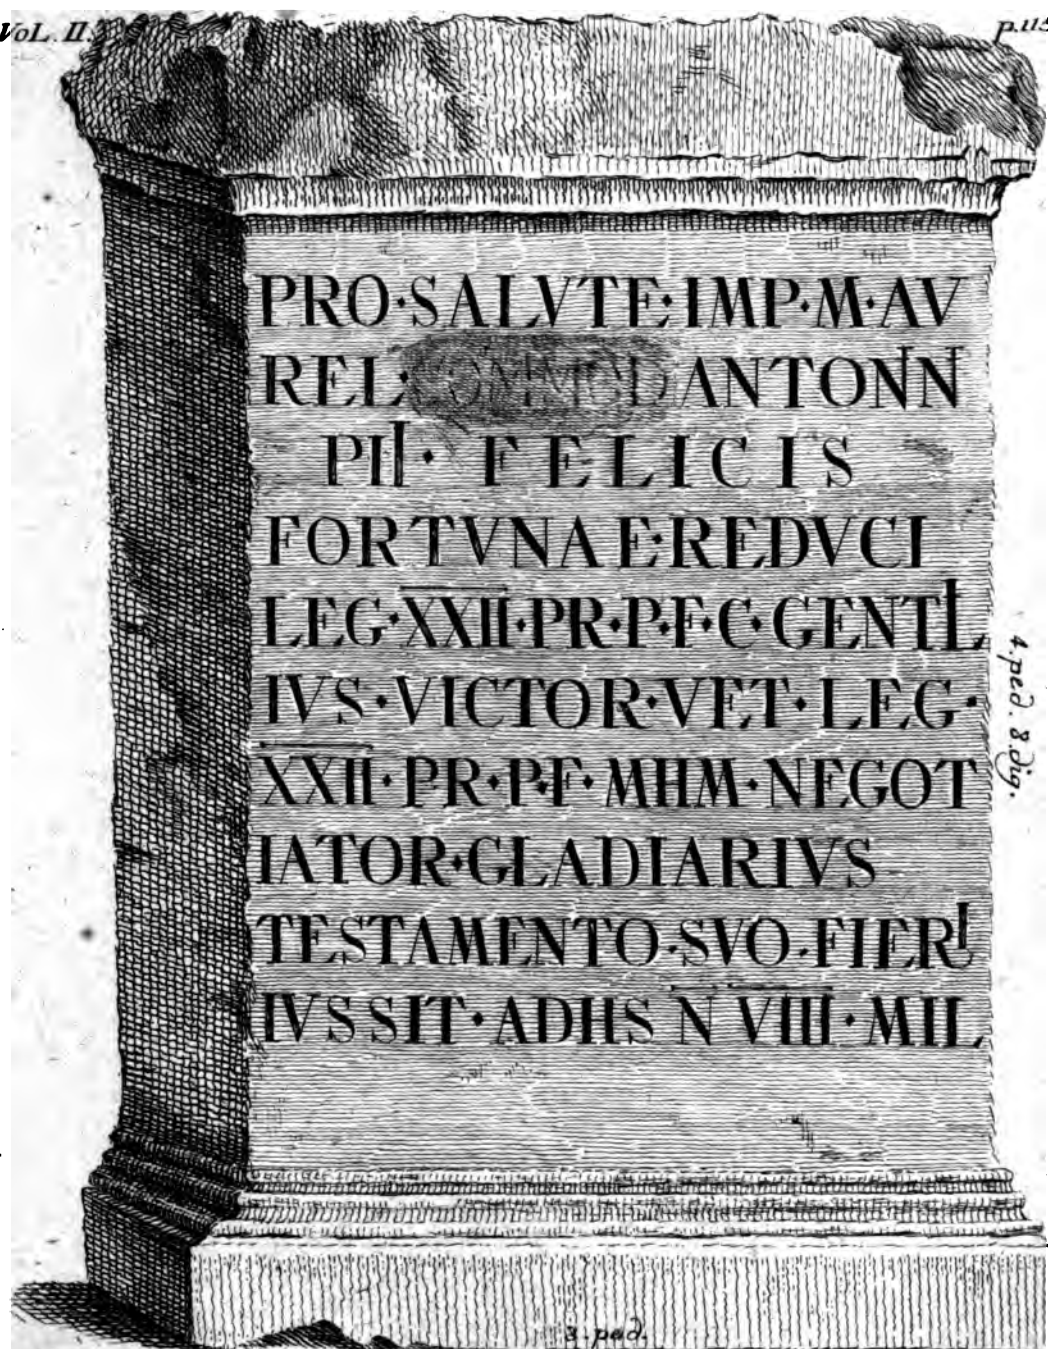 VOL. II.
p. 115
PRO·SALVTE·IMP·M·AV
REL·COMMOD ANTONN
PII· FELICIS
FORTVNAE·REDVCI
LEG·XXII·PR·P·F·C·GENTL
IVS·VICTOR·VET·LEG·
XXII·PR·P·F·MHM·NEGOT
IATOR·GLADIARIVS
TESTAMENTO·SVO·FIERI
IVSSIT·ADHS N VIII·MIL
4. ped. 8. dig.
3. ped.